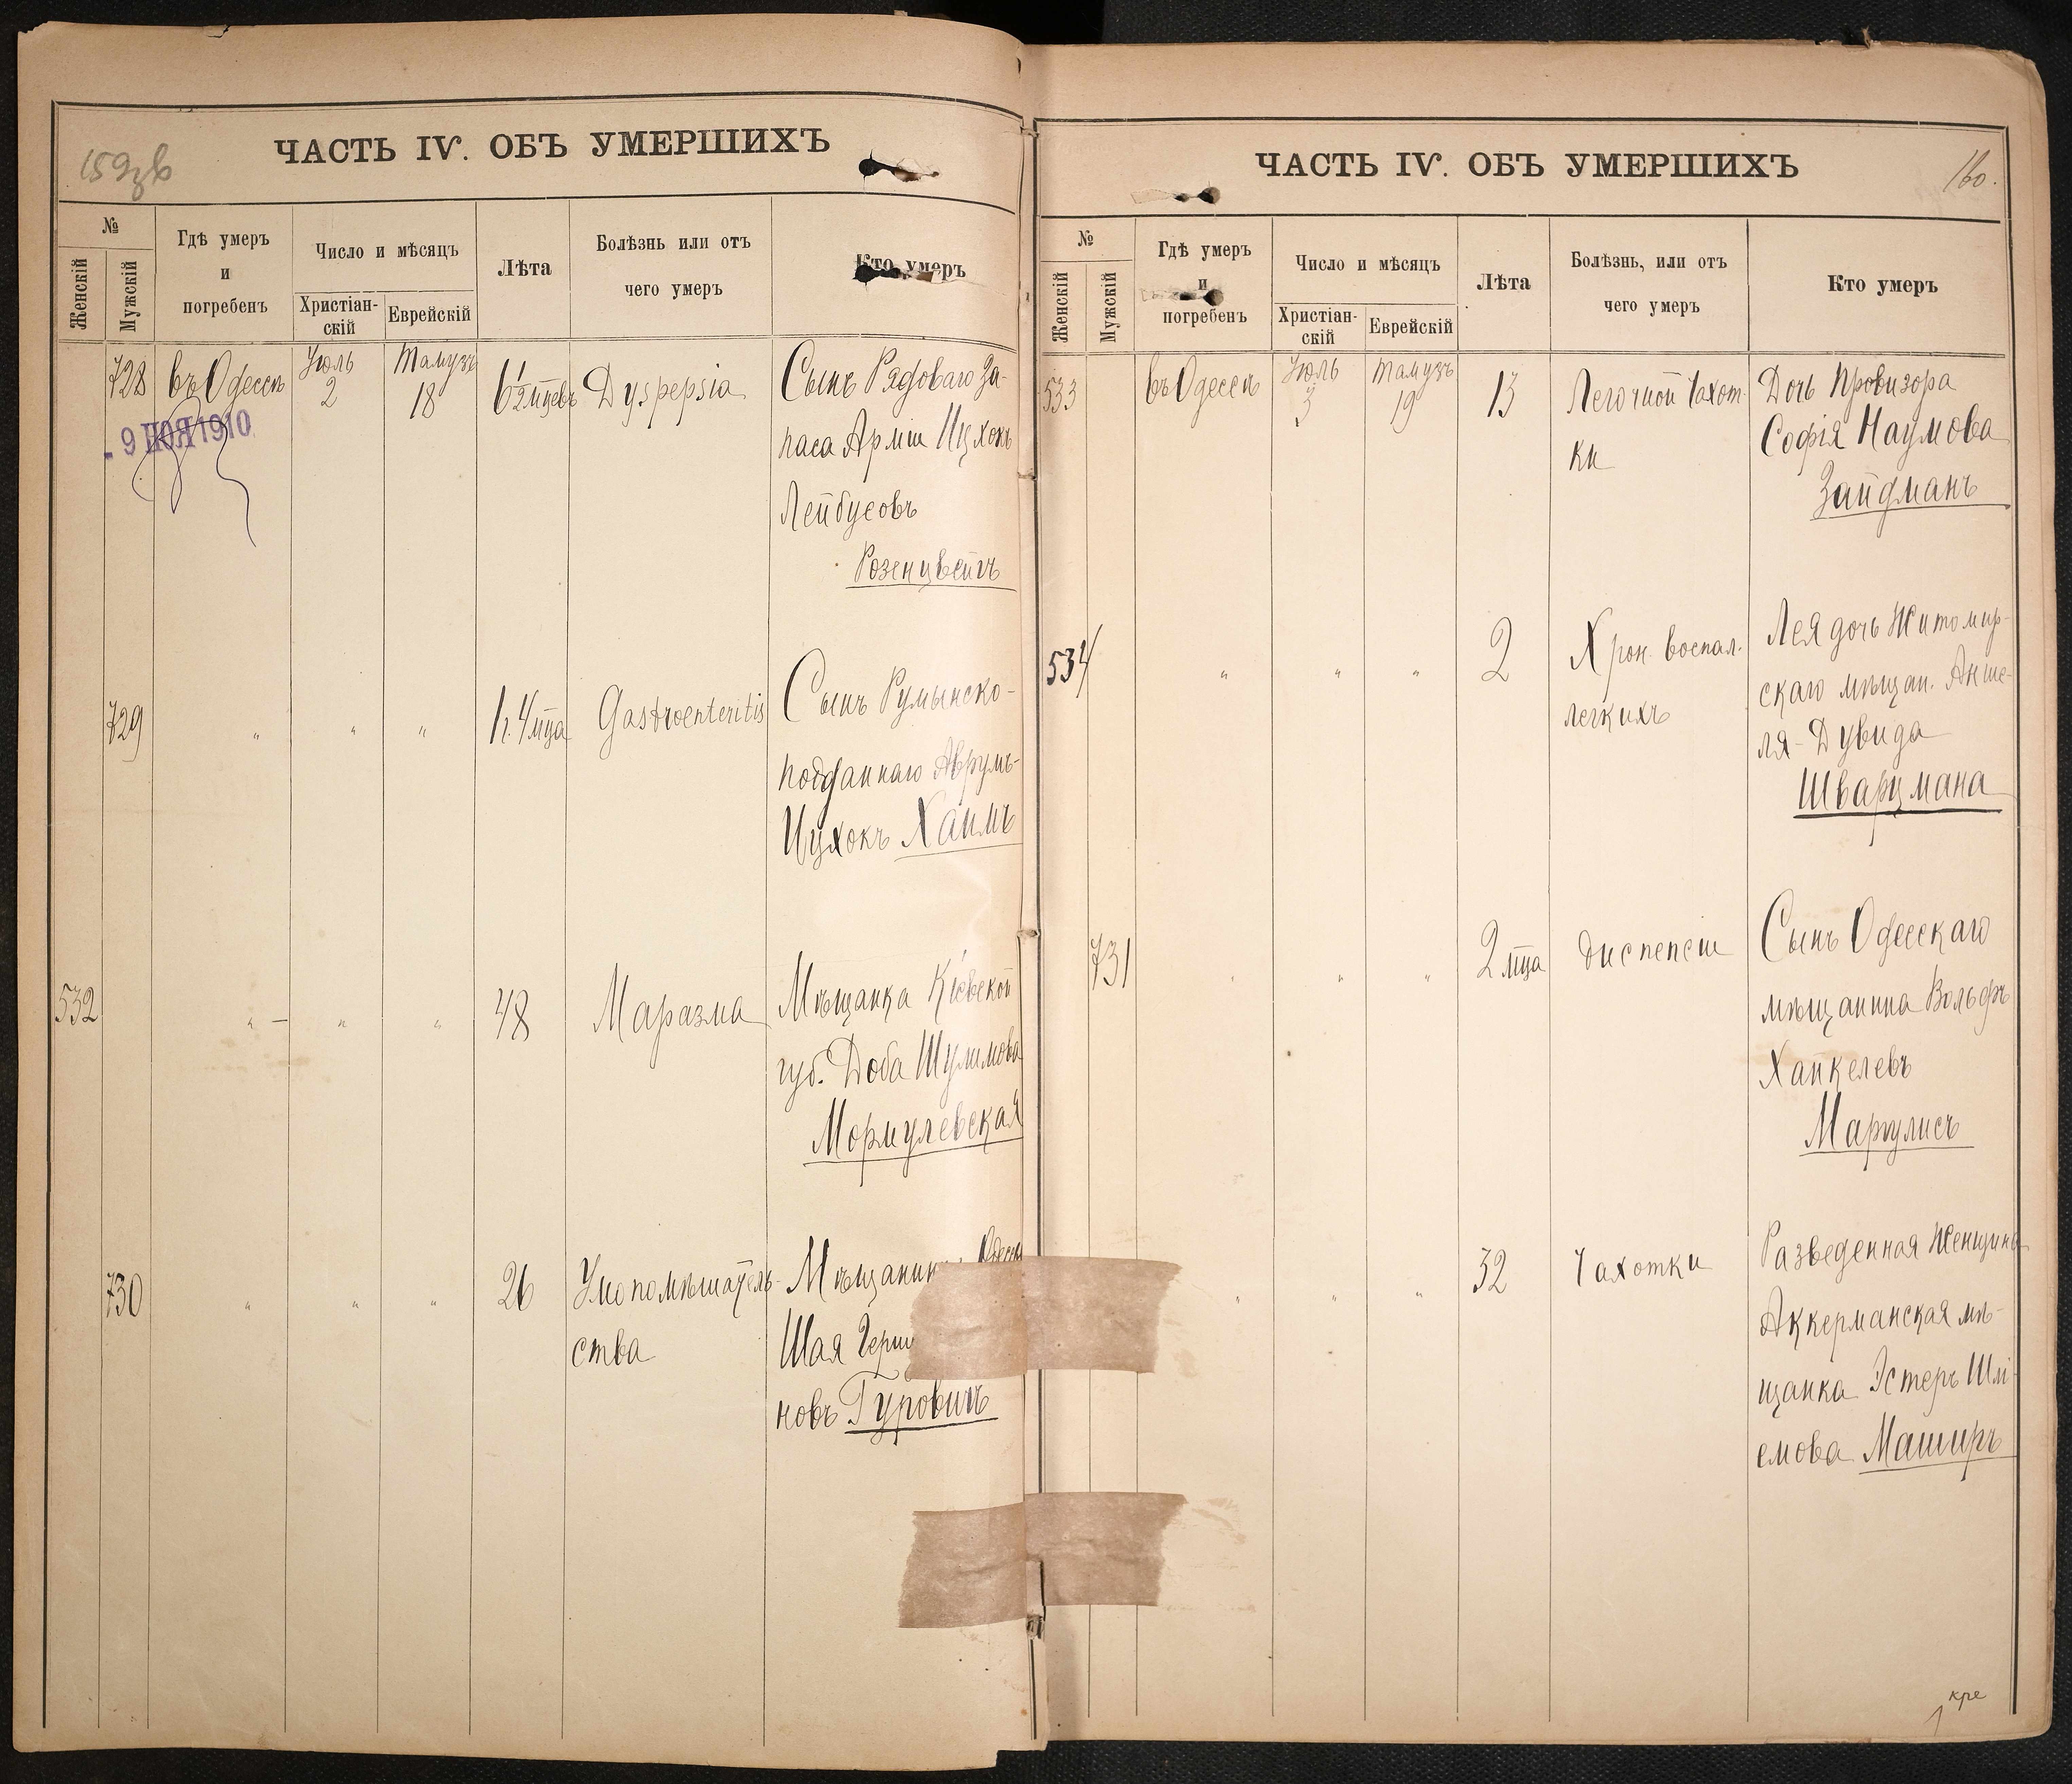 159зв
ЧАСТЬ IV. ОБЪ УМЕРШИХЪ
№
Женскій
Мужскій
Гдѣ умеръ
и
погребенъ
Число и мѣсяцъ
Христіан-
скій
Еврейскій
Лѣта
Болѣзнь или отъ
чего умеръ
Кто умеръ
728 въ Одессѣ Іюль 2 Тамузъ 18 6½ мцевъ Dyspepsia Сынъ Рядоваго За-
паса Арміи Ицхокъ
Лейбусовъ
Розенцвейгъ
- 9 НОЯ 1910
729 " " " 1г. 4 мца Gastroenteritis Сынъ Румынско-
подданнаго Аврумъ-
Ицхокъ Хаимъ
532 " — " " 48 Маразма Мѣщанка Кіевской
губ. Доба Шулимова
Мормулевская
730 " " " 26 Умопомѣшатель-
ства
Мѣщанинъ Одесск
Шая Герш
новъ Гуровичъ
160.
ЧАСТЬ IV. ОБЪ УМЕРШИХЪ
№
Женскій
Мужскій
Гдѣ умеръ
и
погребенъ
Число и мѣсяцъ
Христіан-
скій
Еврейскій
Лѣта
Болѣзнь, или отъ
чего умеръ
Кто умеръ
533 въ Одессѣ Іюль 3 Тамузъ 19 13 Легочной Чахот-
ки
Дочь Провизора
Софія Наумова
Зайдманъ
534 " " " 2 Хрон. воспал.
легкихъ
Лея дочь Житомир-
скаго мѣщан. Анше-
ля-Дувида
Шварцмана
731 " " " 2 мца диспепсіи Сынъ Одесскаго
мѣщанина Вольфъ
Хайкелевъ
Маргулисъ
" " " 32 Чахотки Разведенная Женщина
Аккерманская мѣ-
щанка Эстеръ Шм-
емова Маширъ
кре